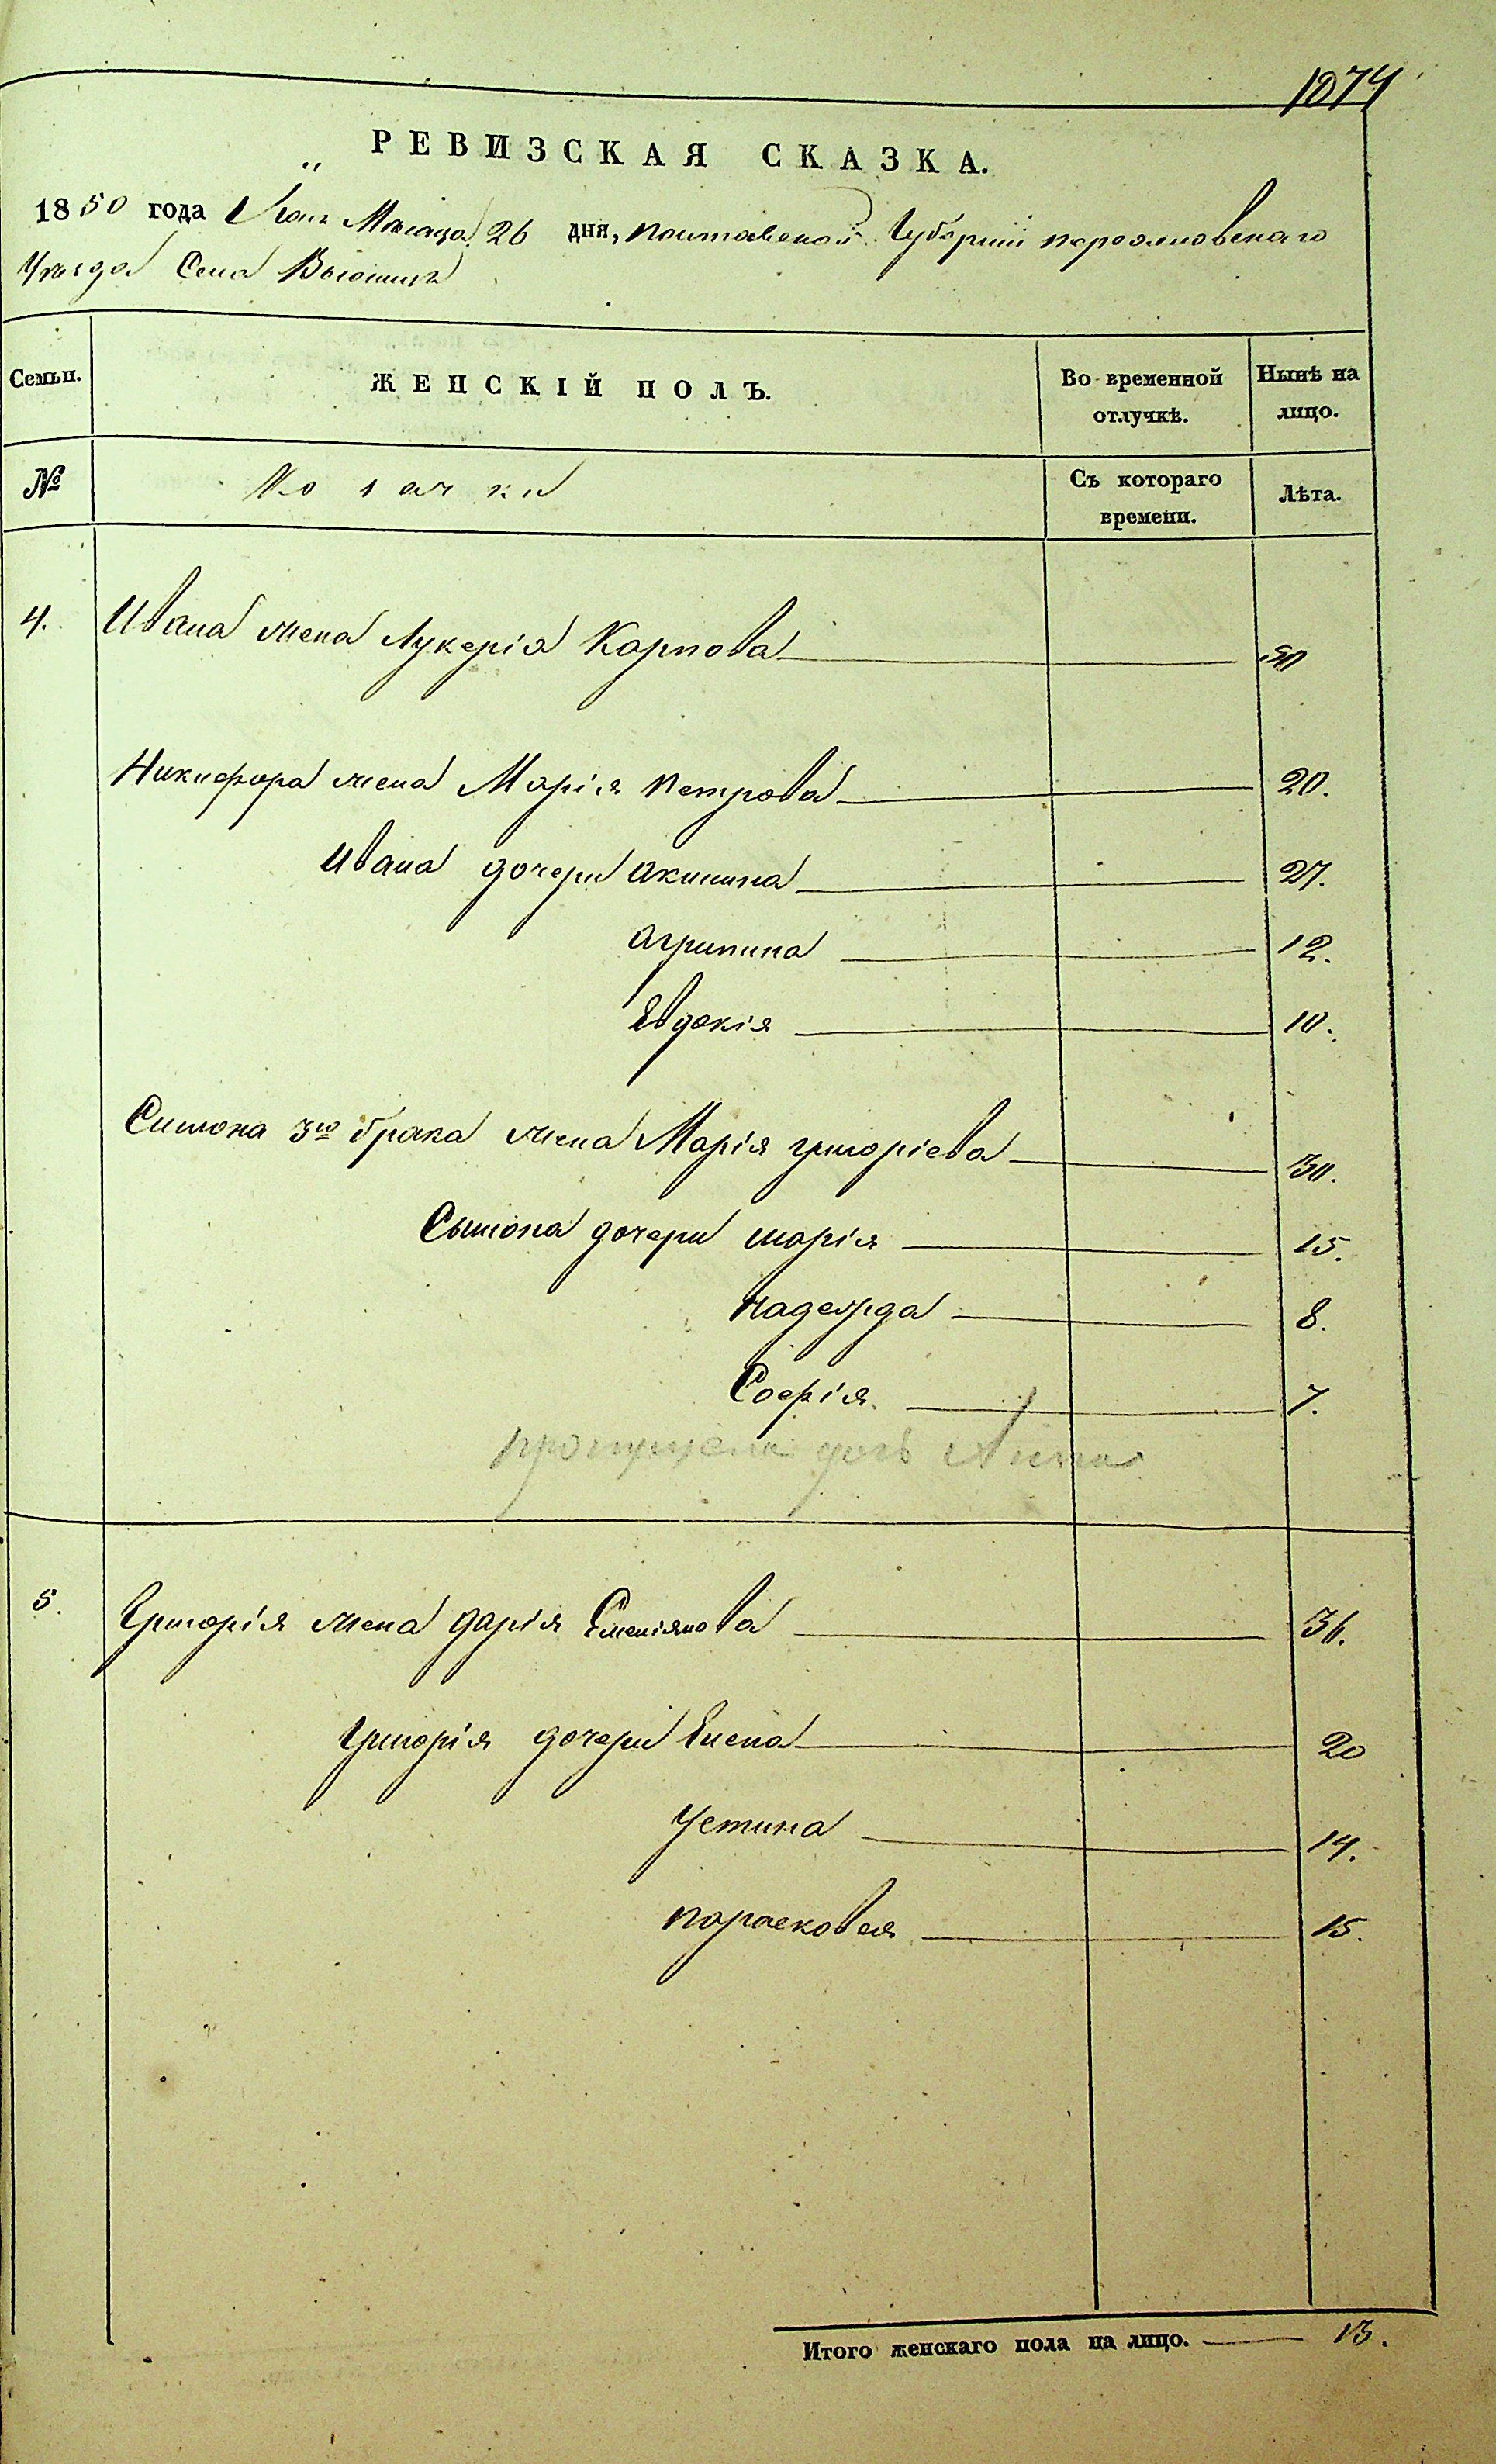 1074
РЕВИЗСКАЯ СКАЗКА.
1850 года Мѣсяца 26 дня, Полтавской Губерніи переяславскаго
Уѣзда Села
Семьи. ЖЕНСКІЙ ПОЛЪ. Во временной отлучкѣ. Нынѣ на лицо.
№ Козачки Съ котораго времени. Лѣта.
4. Ивана жена Лукерія Карпова 50
Никифора жена Марія петрова 20.
Ивана дочери Акилина 27.
Агрипина 12.
Евдокія 10.
Симона 3го брака жена Марія григоріева 30.
Сымона дочери марія 15.
надежда 8.
Софія 7.
пропущена дочь Анна
5. Григорія жена дарія Емеліянова 36.
Григорія дочери Елена 20
Устина 14.
парасковея 15.
Итого женскаго пола на лицо. 13.